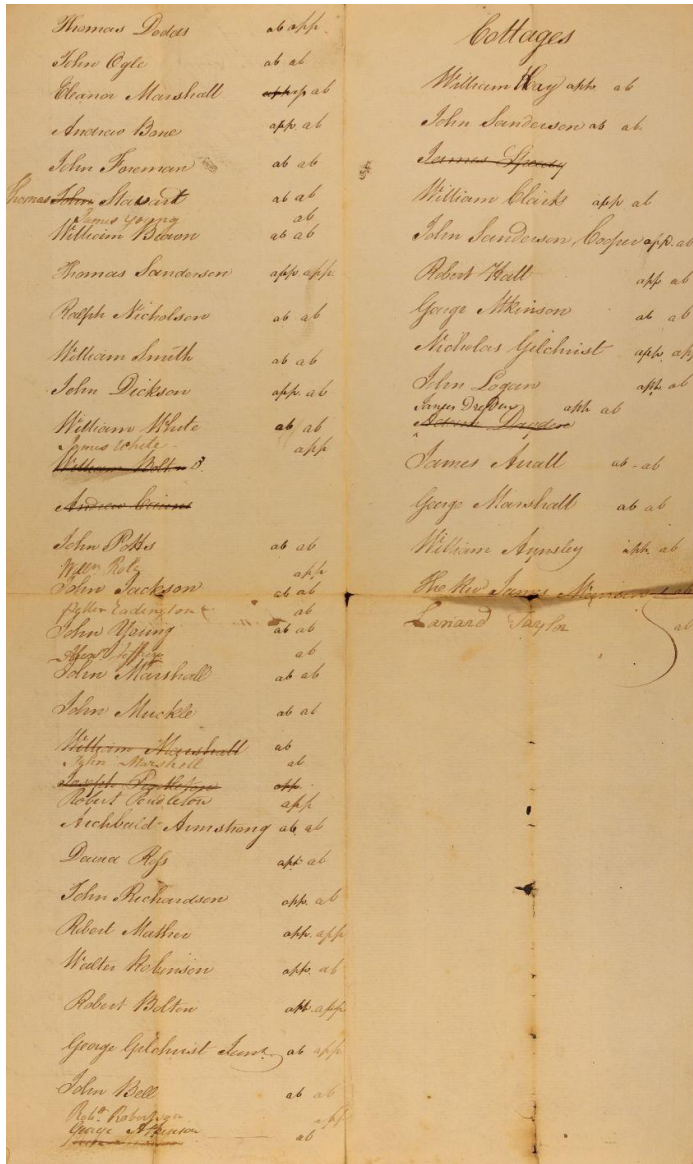 Thomas Dodds ab app.
John Ogle ab ab
Eleanor Marshall app ab
Andrew Bone app. ab
John Foreman ab ab
Thomas John Stewart ab ab
James Young ab
William Brown ab ab
Thomas Sanderson app app.
Ralph Nicholson ab ab
William Smith ab ab
John Dickson app. ab
William White ab ab
James White app
William Bolton
Andrew Cairns
John Potts ab ab
app
John Jackson ab ab
ab
John Young ab ab
ab
John Marshall ab ab
John Muckle ab ab
William Marshall ab
John Marshall ab
Joseph Pendleton app.
Robert Pendleton app
Archbald Armstrong ab. ab
David Ross app ab
John Richardson app. ab
Robert Mather app. app
Walter Robinson app. ab
Robert Bolton app. app
George Gilchrist Junr. ab app
John Bell ab ab
Robt. Robertson app
George Atkinson ab
Cottages
William Hay app. ab
John Sanderson ab ab.
James
William Clark app ab
John Sanderson Cooper app. ab
Robert Hall app ab
George Atkinson ab ab
Nicholas Gilchrist app. app
John Logan app. ab
James Dryden app ab
Dryden
James Auall ab - ab
George Marshall ab ab
William Aynsley app. ab
The Revd. James ab
Lanard Taylor ab